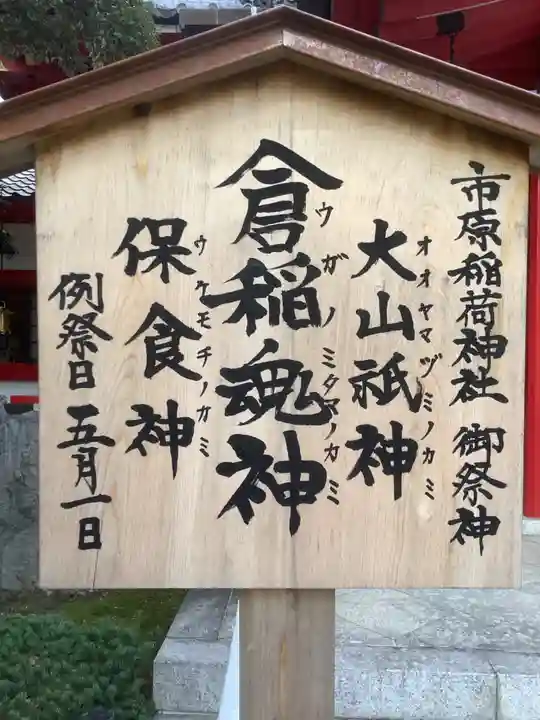 市原稲荷神社 御祭神
大山祇神
オオヤマヅミノカミ
倉稲魂神
ウガノミタマノカミ
保食神
ウケモチノカミ
例祭日 五月一日